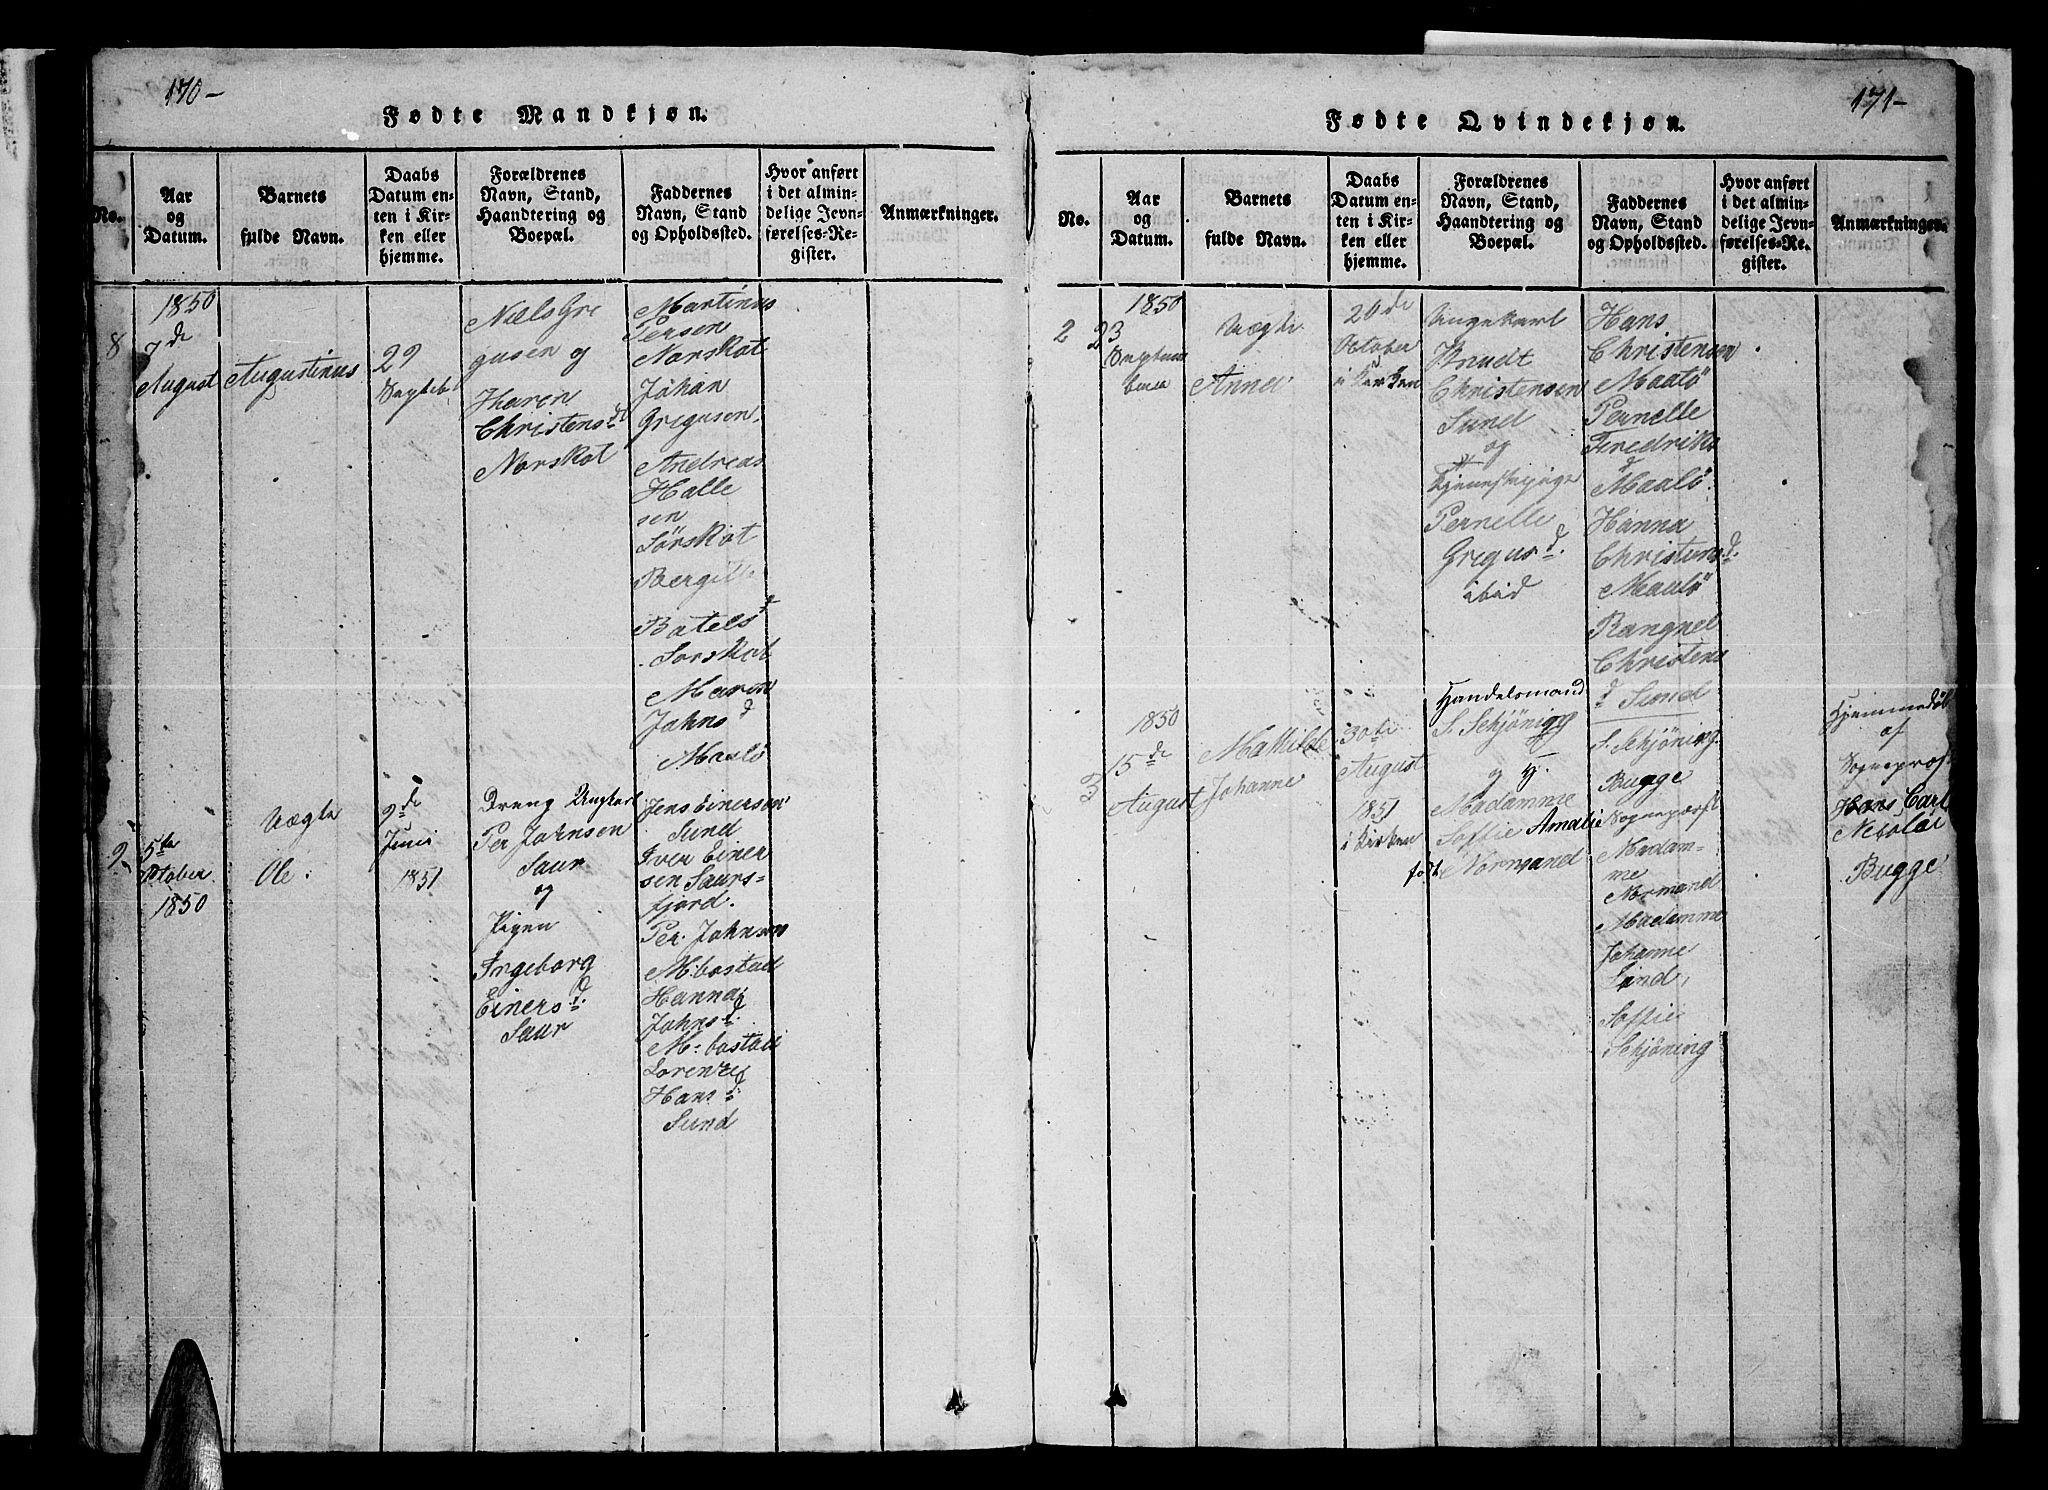 170-
Fødte Mandkjøn.
No.
Aar
og
Datum.
Barnets
fulde Navn.
Daabs
Datum en-
ten i Kir-
ken eller
hjemme.
Forældrenes
Navn, Stand,
Haandtering og
Boepæl.
Faddernes
Navn, Stand
og Opholdssted.
Hvor anført
i det almin-
delige Jevn-
førelses-Re-
gister.
Anmærkninger.
8
1850
7de
August
Augustinus
29
Septeb
Niels Gre
gusen og
Karen
Christensd
Norskot
Martinus
Persen
Norskot
Johan
Gregusen
Andreas
Halle
sen
Sörskot
Bergitte
Batelsd
Sorskot
Maren
Johnsd
Maalö
9
5te
October
1850
Uægte
Ole
2de
Juni
1851
Dreng Ungkarl
Per Johnsen
Saur
og
Pigen
Ingeborg
Einersd.
Saur
Jens Einersen
Sund
Iver Einer
sen Saurs-
fjord.
Per. Johnsen
M:bostad
Hanna
Johnsd.
M:bostad
Lorenze
Hansd
Sund
171-
Fødte Qvindekjøn.
No.
Aar
og
Datum.
Barnets
fulde Navn.
Daabs
Datum en-
ten i Kir-
ken eller
hjemme.
Forældrenes
Navn, Stand,
Haandtering og
Boepæl.
Faddernes
Navn, Stand
og Opholdssted.
Hvor anført
i det almin-
delige Jevn-
førelses-Re-
gister.
Anmærkninger.
2
1850
23
Septem
ber
Uægte
Anne
20de
October
i Kirken
Ungekarl
Brudt
Christensen
Sund
og
Pernelle
Gregusd.
ibid
Hans
Christensen
Maalö
Pernelle
Fredriks
d
Maalö.
Hanna
Christensd.
Maalö
Rangnel
Christens
d Sund
3
1850
15de
August
Mathilde
Johanne
30te
August
1851
i Kirken
Handelsmand
S. Schjöning
og H.
Madamme
Soffie Amalie
født Normand
S. Schjöning
Bugge
Sogneprest
Madam-
me
Normand
Madamme
Johanne
Lind,
Soffie
Schjöning
Hjemmedöbt
af
Sogneprest
Hans Carl
Nicolai
Bugge